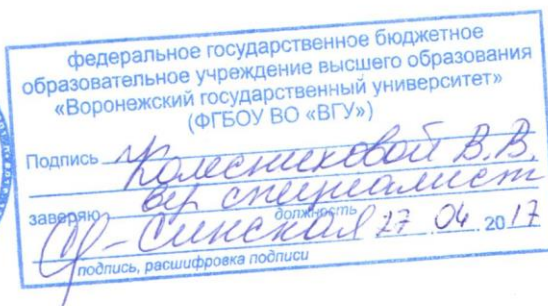 федеральное государственное бюджетное
образовательное учреждение высшего образования
«Воронежский государственный университет»
(ФГБОУ ВО «ВГУ»)
Подпись Колесниковой В.В.
заверяю вед специалист
должность
Синская 27 04 2017
подпись, расшифровка подписи